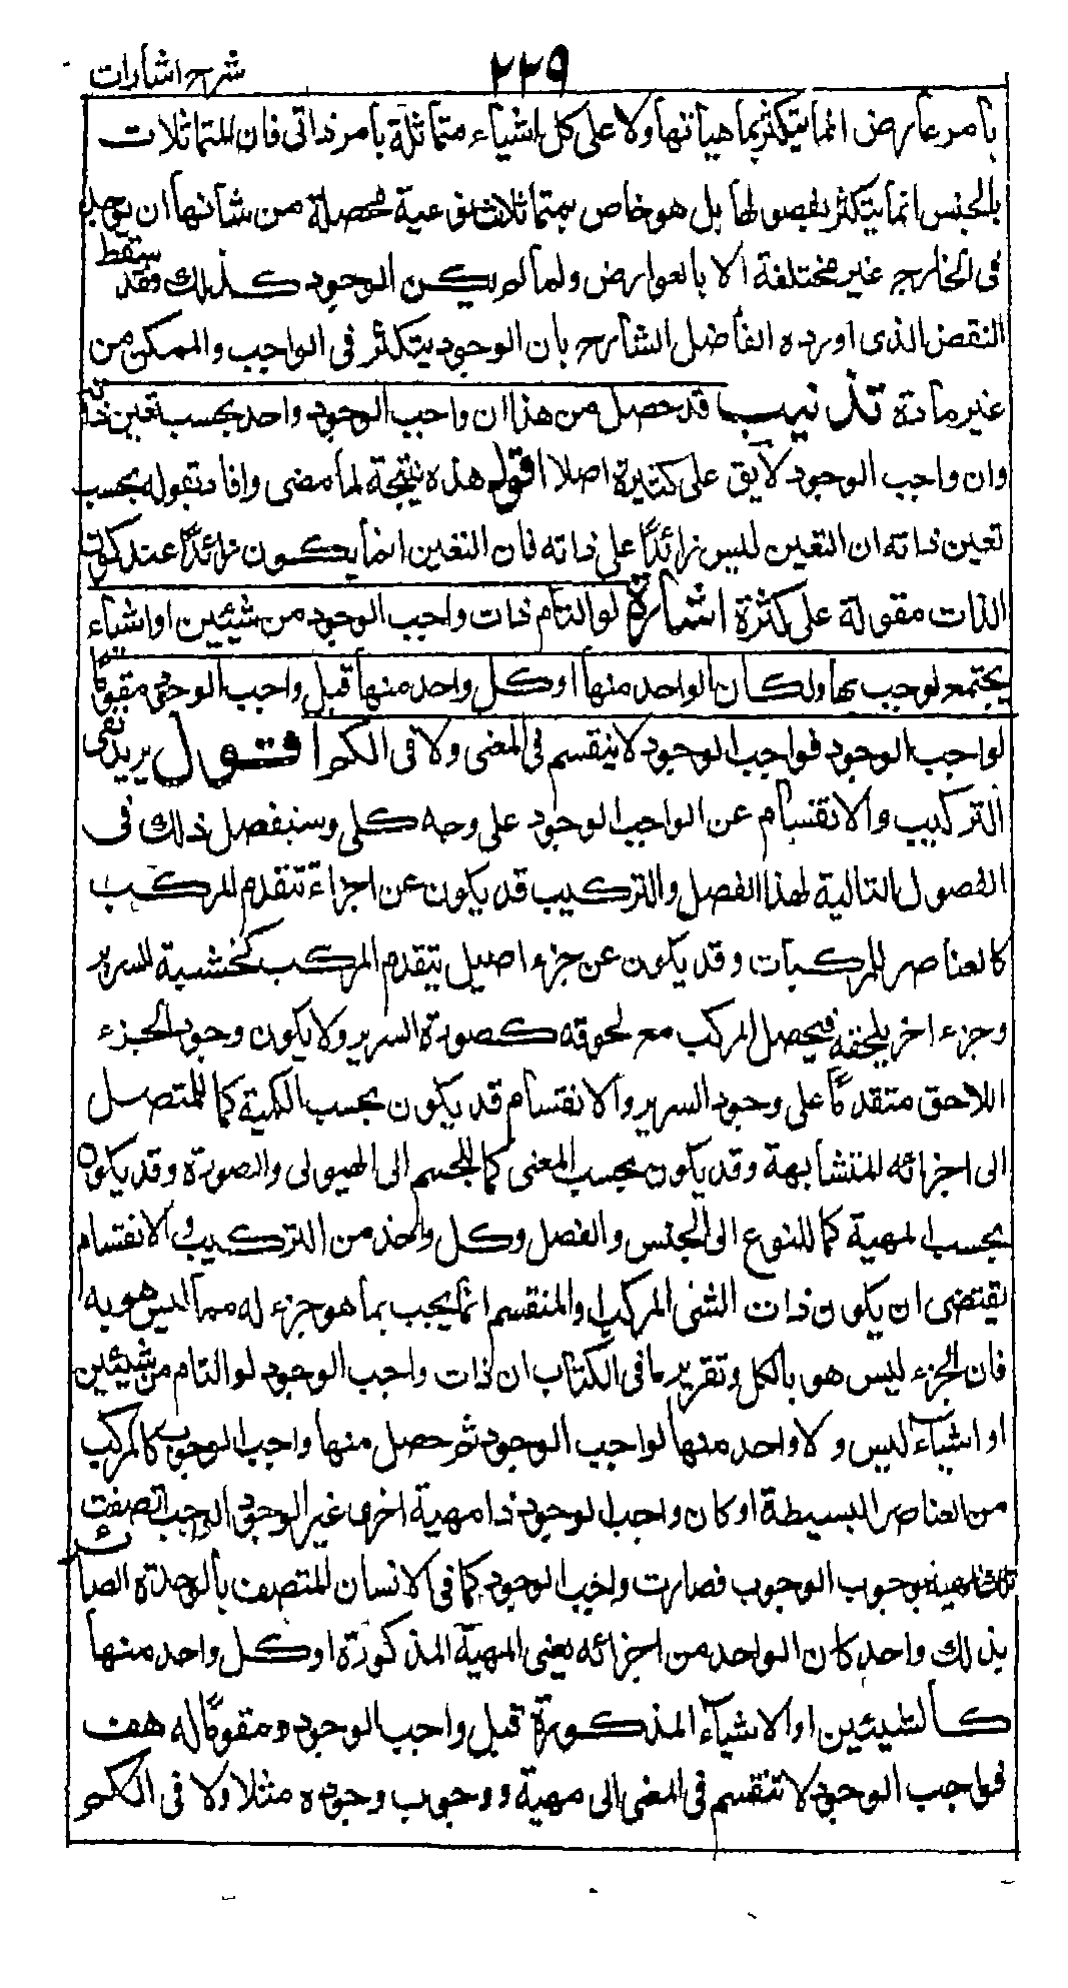 ٢٢٩
شرح اشارات
بامر عارض انما يتكثر بماهياتها ولا على كل اشياء متماثلة بامر ذاتى فان المتماثلات
بالجنس انما يتكثر بفصولها بل هو خاص بمتماثلات نوعية محصلة من شانها ان يوجد
فى الخارج غير مختلفة الا بالعوارض ولما لم يكن الوجود كذلك فقد سقط
النقض الذى اورده الفاضل الشارح بان الوجود يتكثر فى الواجب والممكن من
غير مادة تذنيب قد حصل من هذا ان واجب الوجود واحد بحسب تعين ذاته
وان واجب الوجود لا يق على كثيرة اصلا اقول هذه نتيجة لما مضى وافاد بقوله بحسب
تعين ذاته ان التعين ليس زائدًا على ذاته فان التعين انما يكون زائدًا عند كون
الذات مقولة على كثرة اشارة لو التام ذات واجب الوجود من شيئين او اشياء
يجتمع لوجب بها ولكان الواحد منها او كل واحد منها قبل واجب الوجود مقومًا
لواجب الوجود فواجب الوجود لا ينقسم فى المعنى ولا فى الكم اقول يريد نفى
التركيب والانقسام عن الواجب الوجود على وجه كلى وسنفصل ذلك فى
الفصول التالية لهذا الفصل والتركيب قد يكون عن اجزاء تتقدم المركب
كالعناصر للمركبات وقد يكون عن جزء اصيل يتقدم المركب كخشبة السرير
وجزء اخر يلحقه فيحصل المركب مع لحوقه كصورة السرير ولا يكون وجود الجزء
اللاحق متقدمًا على وجود السرير والانقسام قد يكون بحسب الكمية كما للمتصل
الى اجزائه المتشابهة وقد يكون بحسب المعنى كما للجسم الى الهيولى والصورة وقد يكون
بحسب المهية كما للنوع الى الجنس والفصل وكل واحد من التركيب والانقسام
يقتضى ان يكون ذات الشئ المركب والمنقسم انما يجب بما هو جزء له مما ليس هو به
فان الجزء ليس هو بالكل وتقرير ما فى الكتاب ان ذات واجب الوجود لو التام من شيئين
او اشياء ليس ولا واحد منها لواجب الوجود ثم حصل منها واجب الوجود كالمركب
من العناصر البسيطة او كان واجب الوجود ذا مهية اخرى غير الوجود الواجب اتصفت
تلك المهية بوجوب الوجوب فصارت واجب الوجود كما فى الانسان المتصف بالوحدة الصائر
بذلك واحد كان الواحد من اجزائه يعنى المهية المذكورة او كل واحد منها
كالشيئين او الاشياء المذكورة قبل واجب الوجود ومقومًا له هف
فواجب الوجود لا تنقسم فى المعنى الى مهية ووجوب وجوده مثلا ولا فى الكم